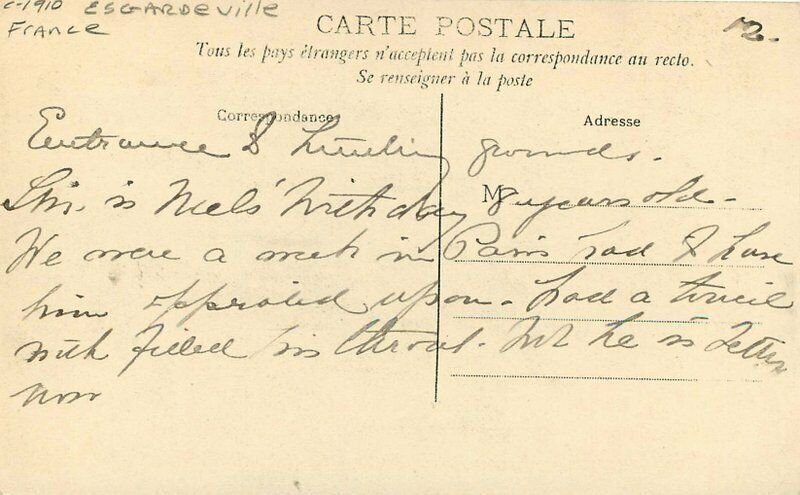 c-1910 ESGARDEVILLE
France
12.-
CARTE POSTALE
Tous les pays étrangers n'acceptent pas la correspondance au recto.
Se renseigner à la poste
Correspondance
Adresse
Entrance & hunting grounds.
This is Neels' birthday M 8 years old -
We were a week in Paris had to have
him operated upon - had a tonsil
which filled his throat. but he is better
now